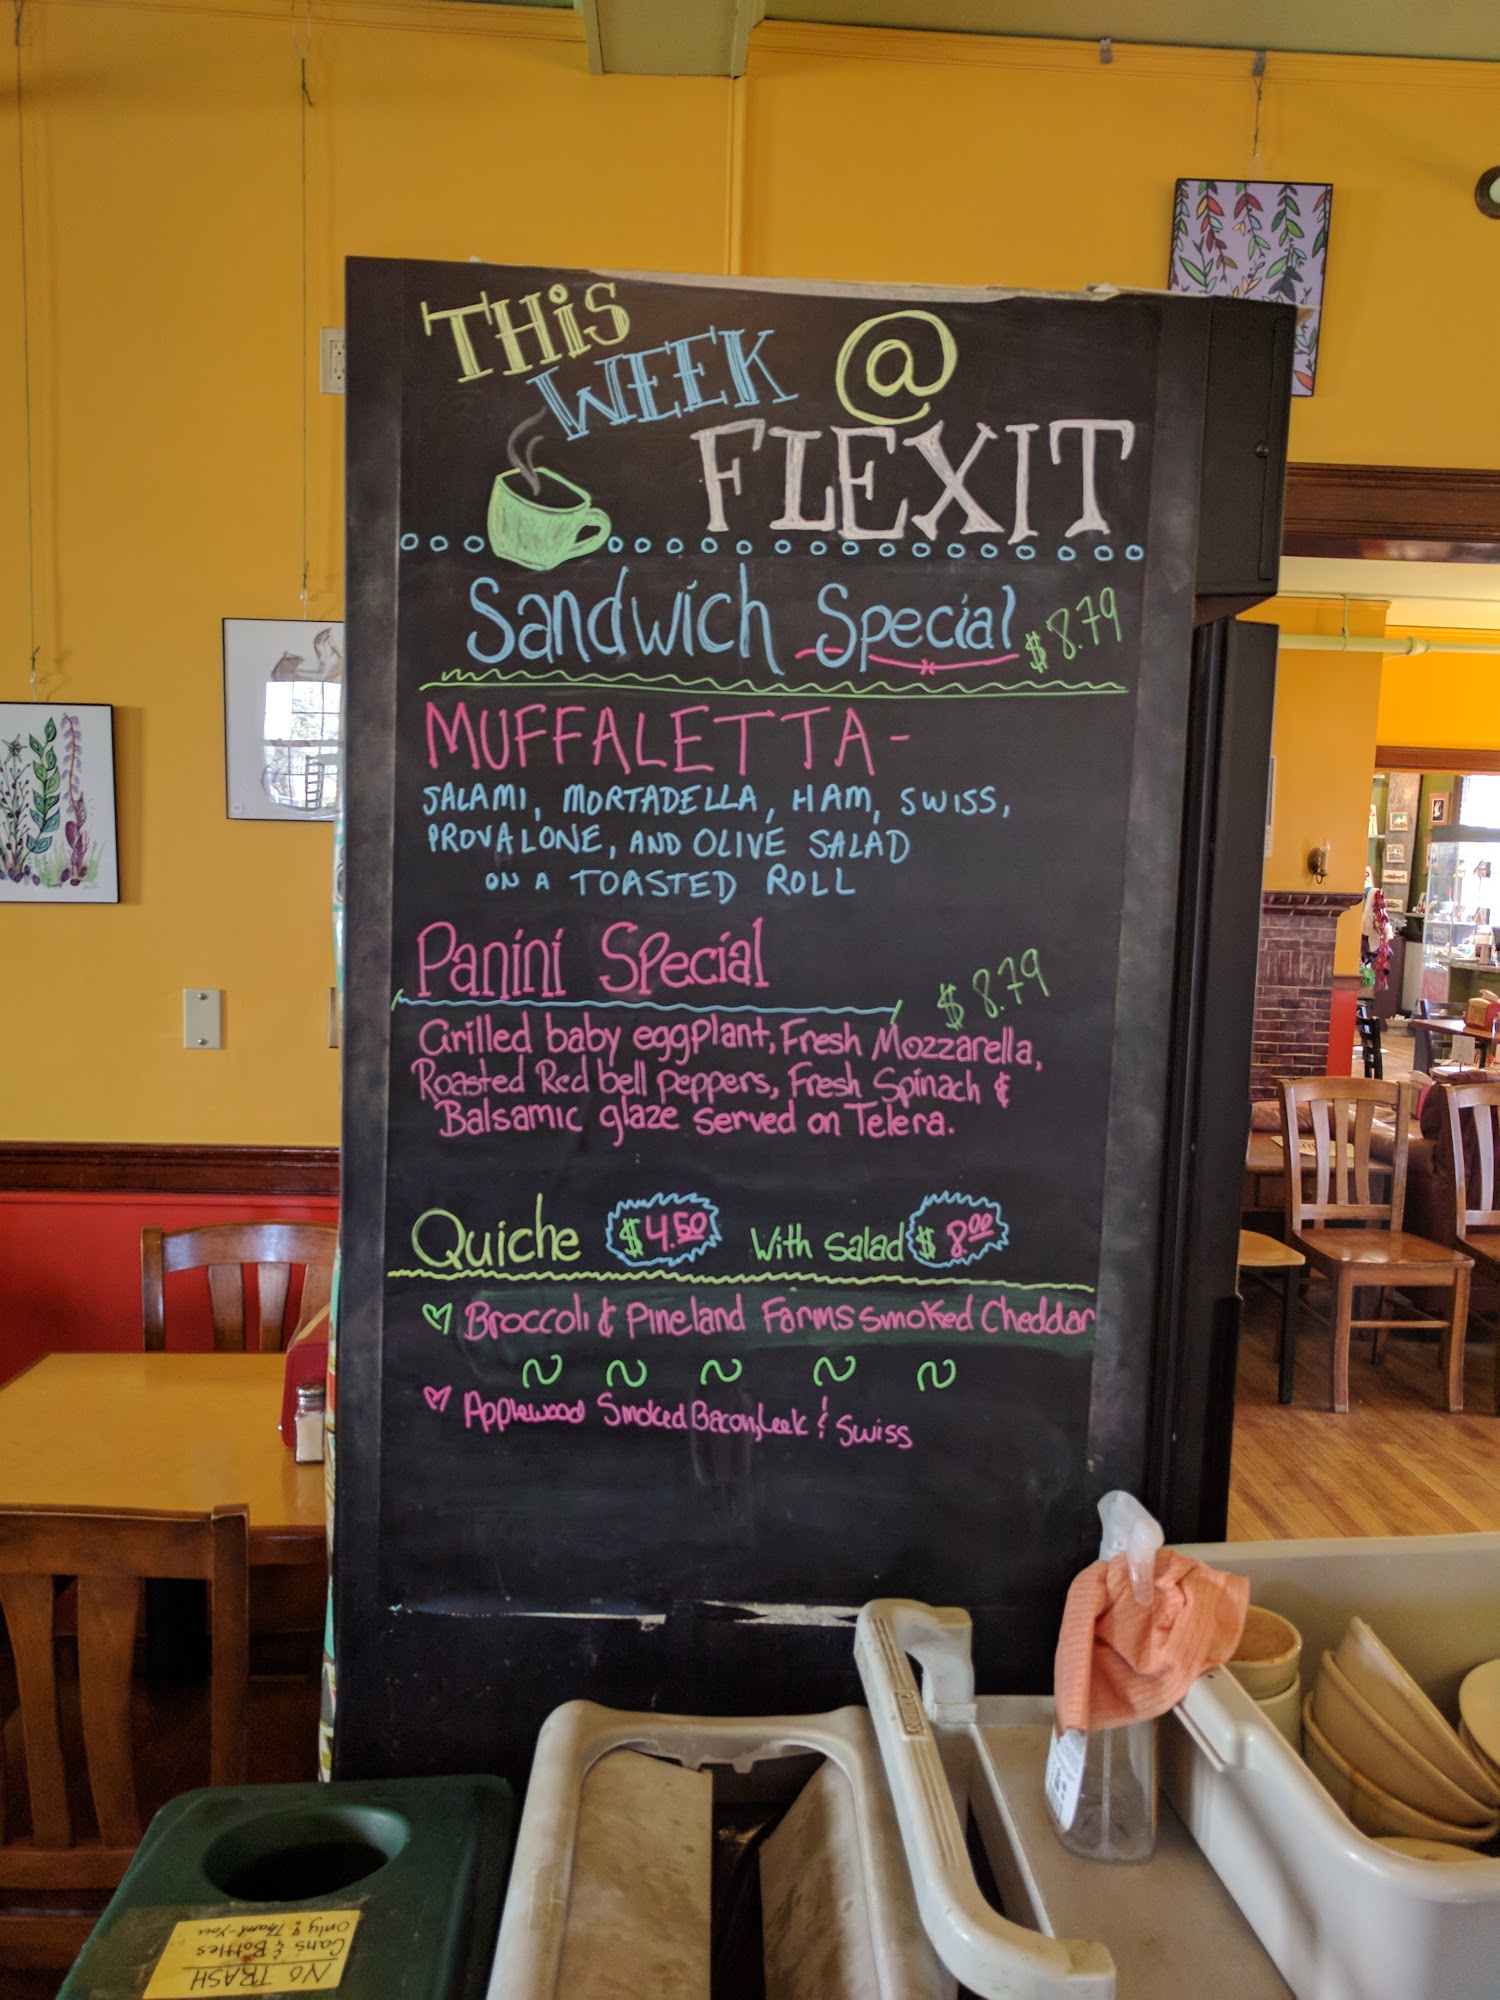 THiS
WEEK @
FLEXIT
Sandwich Special $8.79
MUFFALETTA-
SALAMI, MORTADELLA, HAM, SWISS,
PROVALONE, AND OLIVE SALAD
ON A TOASTED ROLL
Panini Special $8.79
Grilled baby eggplant, Fresh Mozzarella,
Roasted Red bell peppers, Fresh Spinach &
Balsamic glaze served on Telera.
Quiche $4.50 With Salad $8.00
Broccoli & Pineland Farms Smoked Cheddar
Applewood Smoked Bacon, Leek & Swiss
NO TRASH
Cans & Bottles
Only! Thank-You